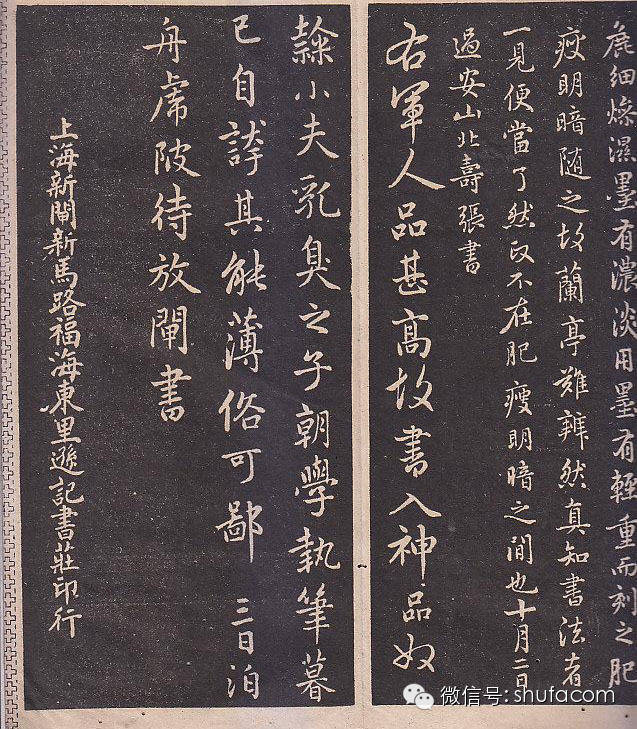 麁細燥濕墨有濃淡用墨有輕重而刻之肥
瘦明暗随之故蘭亭難辨然真知書法者
一見便當了然政不在肥瘦明暗之間也十月二日
過安山北壽張書
右軍人品甚高故書入神品奴
隸小夫乳臭之子朝學執筆暮
已自誇其能薄俗可鄙 三日泊
舟虎陂待放閘書
上海新閘新馬路福海東里遜記書莊印行
微信号: shufacom